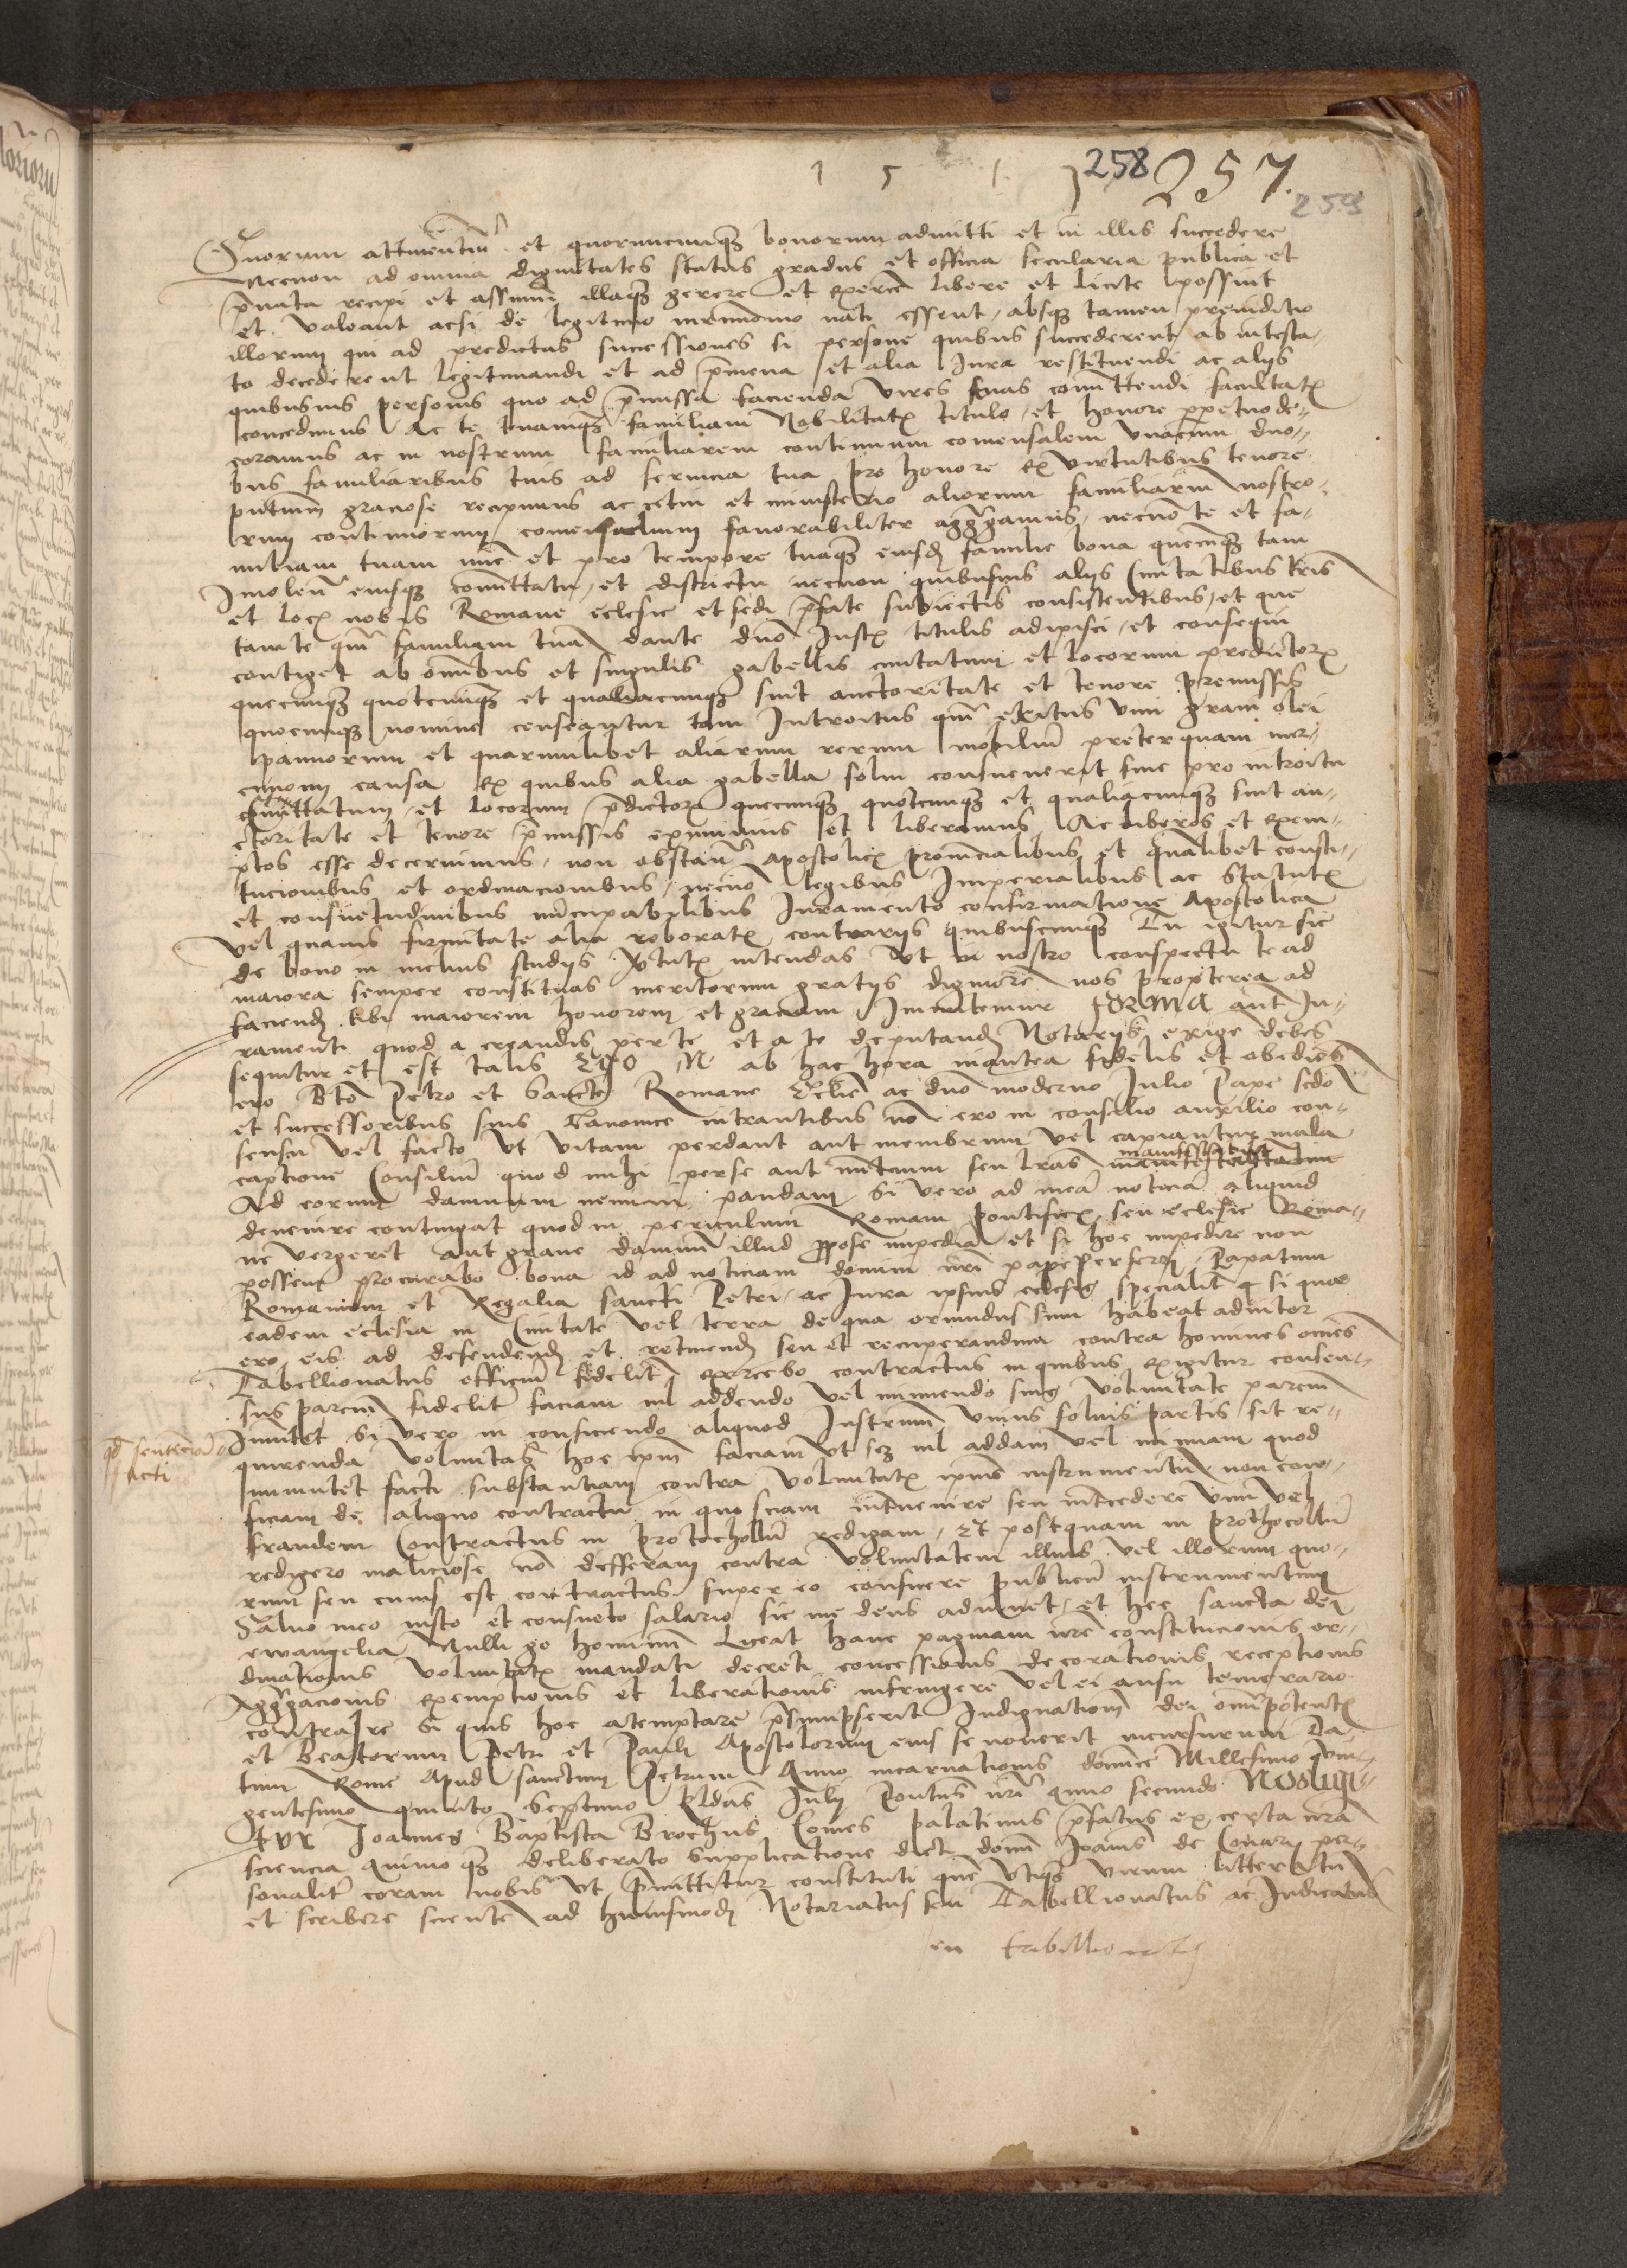 1 5 1. 258 257.
259
Quorum attinentiũ et quorumcumqʒ bonorum admitti et in illis succedere
Necnon ad omnia dignitates status gradus et officia secularia publica et
p̃uata recipi et assumi illaqʒ gerere et exercẽ libere et licite possint
et valeant acsi de legitimo mr̃imonio nati essent / absqʒ tamen preiuditio
illorum qui ad predictas successiones si persone quibus succederent ab intesta-
to decederent legitimandi et ad p̃meua et alia Iura restituendi ac alijs
quibusuis personis quo ad p̃missa facienda vires tuas comittendi facultatꝭ
concedimus Ac te tuamqʒ familiam Nobilitatꝭ titulo / et honore ꝑpetuo de-
coramus ac in nostrum familiarem continuum comensalem vnacum duo-
bus familiaribus tuis ad seruicia tua pro honore ex virtutibus tenore
pñtium graciose recipimus ac cetui et ministerio aliorum familiariũ nostro-
rum continuorum comensalium fauorabiliter aggregamus / necnõ te et fa-
miliam tuam nũc et pro tempore tuaqʒ eiusdẽ familie bona quecũqʒ tam
Imoleñ eiusqʒ comittatu / et districtu necnon quibusuis alijs Ciuitatibus tr̃is
et locꝭ nobis Romane ecclesie et sedi p̃fate subiectis consistentibus / et que
tam te qm̃ familiam tuã dante dnõ Iustꝭ titulis adipisci / et consequi
contiget ab omibus et singulis gabellis ciuitatum et locorum predictorꝝ
quecumqʒ quotcumqʒ et qualiacumqʒ sint auctoritate et tenore premissis
quocumqʒ nomine censeantur tam Introitus qm̃ exitus vini grani olei
pannorum et quarumlibet aliarum rerum mobiliũ preterquam mer-
cimonij causa ex quibus alia gabella solui consueuerit siue pro introitu
comittatum et locorum p̃dictorꝝ quecumqʒ quotcumqʒ et qualiacumqʒ sint au-
ctoritate et tenore p̃missis eximimus et liberamus Ac liberos et exem-
ptos esse decernimus / non obstañ Apostolicꝭ prouincialibus et qualibet consti-
tucionibus et ordinacionibus / necnõ legibus Imperialibus ac Statutꝭ
et consuetudinibus Iuramento confirmatione Apostolica
vel quauis firmitate alia roboratꝭ contrarijs quibuscumqʒ Tu igitur sic
de bono in melius studijs virtutꝭ intendas vt in nostro conspectu te ad
maiora semper constituas meritorum gratijs digniorẽ nos propterea ad
faciendꝫ tibi maiorem honorem et graciam Inuitemur forma aut Iu-
ramenti quod a creandis per te et a te deputandꝫ Notarijs exige debes
sequitur et est talis Ego N ab hac hora inantea fidelis et obediens
ero Btõ Petro et Sancte Romane Eclie ac dnõ moderno Iulio Pape sedõ
et successoribus suis Canonice intrantibus nõ ero in consilio auxilio con-
sensu vel facto vt vitam perdant aut membrum vel capiantur mala
captione Consiliũ quod mihi perse aut nũtium seu lras manifestabitur
Ad eorum damnum nemini pandam / Si vero ad meã noticiã aliquid
deuenire contingat quod in periculum Romani pontificꝭ seu eclesie Roma-
ne vergeret aut graue damnũ illud ꝓposse impediã et si hoc impedire non
possem procurabo bona id ad noticiam domini nr̃i pape perferrj / Papatum
Romanum et Regalia sancti Petri / ac Iura ipsius eclesie specialiꝉ q si que
eadem eclesia in Ciuitate vel terra de qua oriundus sum habeat adiutor
ero eis ad defendendꝫ et retinendꝫ seu et recuperandum contra homines omẽs
Tabellionatus officiũ fideliꝉ exercebo contractus in quibus exigitur consen-
sus parciũ fideliꝉ faciam nil addendo vel minuendo sine voluntate parciũ
Inmitet Si vero in conficiendo aliquod Instrumꝫ vnius solius partis sit re-
qʒ sentencia
facti
quirenda voluntas hoc ipm̃ faciam vt scꝫ nil addam vel minuam quod
inmutet facti substanciam contra voluntatꝭ ipius instrumentũ non con-
ficiam de aliquo contractu in quo sciam inꝉuenire seu inꝉcedere vim vel
fraudem Contractus in protocholũ redigam / Et postquam in prothocollũ
redigero maliciose nõ defferam contra voluntatem illius vel illorum quo-
rum seu cuius est contractus super eo conficere publicũ instrumentum
Saluo meo iusto et consueto salario sic me deus adiuuet / et hec sancta dei
ewangelia Nulli go hominũ liceat hanc paginam nr̃e constitucionis or-
dinationis voluntatꝭ mandati decreti concessionis decorationis receptionis
Aggregacionis exemptionis et liberationis infringere vel ei ausu temerario
contraire Si quis hoc atemptare p̃sumpserit Indignationẽ dei omnipotentꝭ
et Beatorum Petri et Pauli Apostolorum eius se nouerit incursurum Da-
tum Rome Apud sanctum Petrum Anno incarnationis dominice Millesimo quin-
gentesimo quinto Septimo kldas Iulij Pontus nr̃i anno secundo Nos igi-
tur Joannes Baptista Brochus Comes palatinus p̃fatus ex certa nr̃a
sciencia animoqʒ deliberato Supplicatione dicti domĩ Joanis de Conarij per-
sonaliꝉ coram nobis vt p̃mittitur constituti quẽ vtiqʒ virum litteratũ
et scribere scientẽ ad huiusmodj Notariatus seu Tabellionatus ac Iudicatus
en tabillionatus